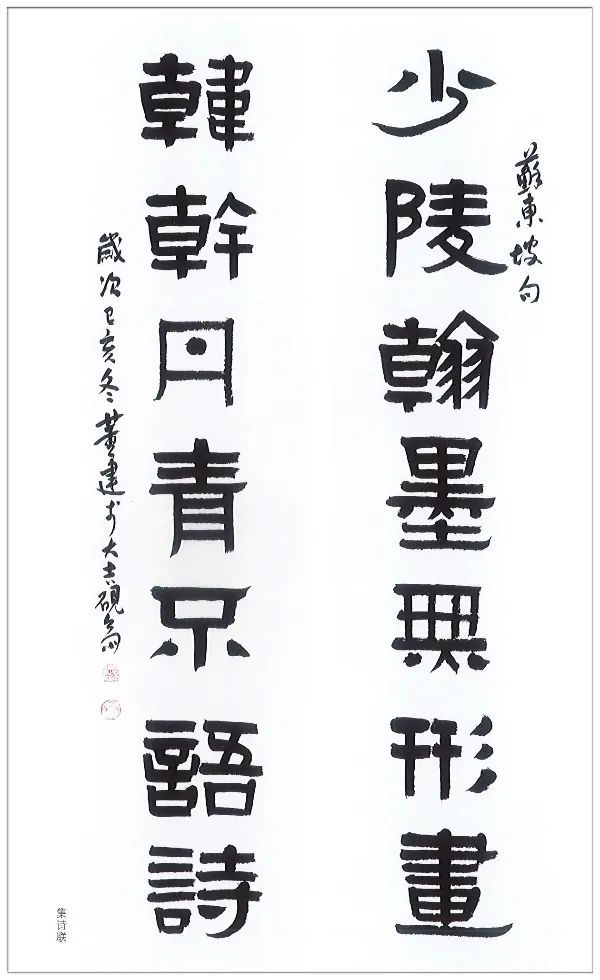 蘇東坡句
少陵翰墨無形畫
韓幹丹青不語詩
歲次己亥冬董建于大吉硯齋
集诗联